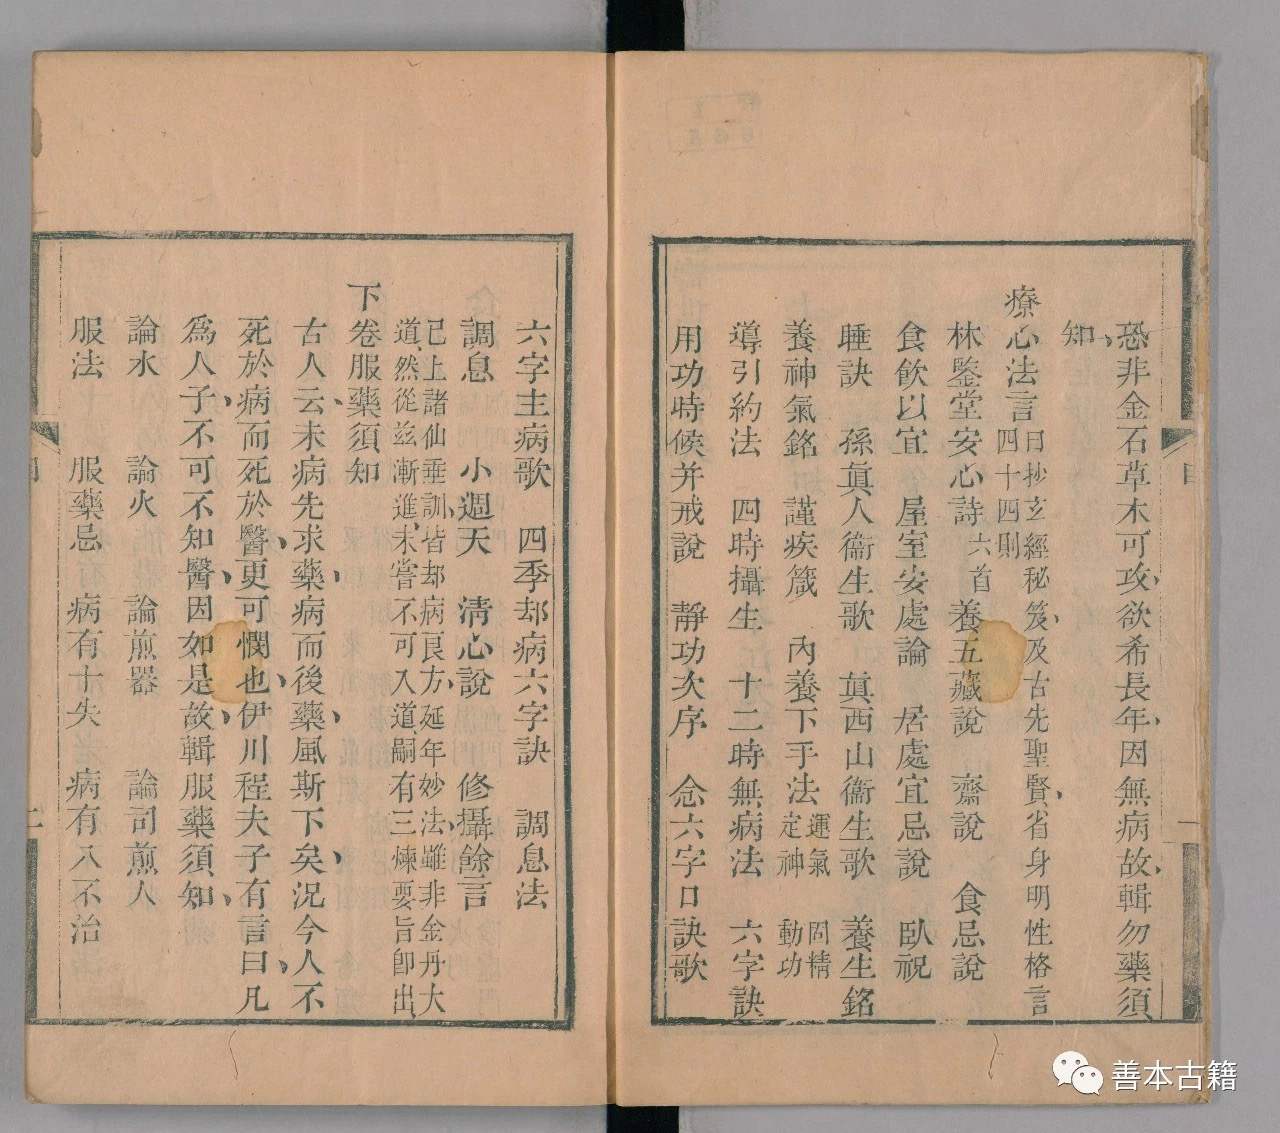 恐非金石草木可攻欲希長年因無病故輯勿藥須
知
療心法言曰抄玄經秘笈及古先聖賢省身明性格言
四十四則
林鑒堂安心詩六首 養五藏說 齋說 食忌說
食飲以宜 屋室安處論 居處宜忌說 臥祝
睡訣 孫眞人衞生歌 眞西山衞生歌 養生銘
養神氣銘 謹疾箴 內養下手法運氣 固精
定神 動功
導引約法 四時攝生 十二時無病法 六字訣
用功時候并戒說 靜功次序 念六字口訣歌
六字主病歌 四季却病六字訣 調息法
調息 小週天 清心說 修攝餘言
已上諸仙垂訓皆却病良方延年妙法雖非金丹大
道然從兹漸進未嘗不可入道嗣有三煉要旨卽出
下卷服藥須知
古人云未病先求藥病而後藥風斯下矣況今人不
死於病而死於醫更可憫也伊川程夫子有言曰凡
爲人子不可不知醫因如是故輯服藥須知
論水 論火 論煎器 論司煎人
服法 服藥忌 病有十失 病有八不治
善本古籍